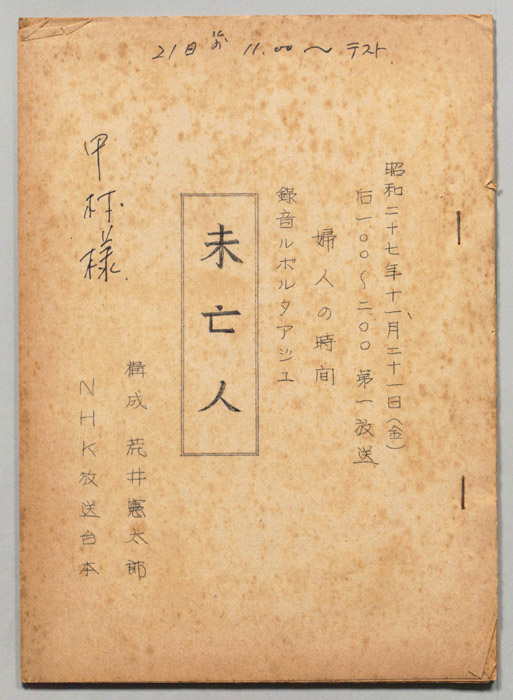 21日 前 11.00〜 テスト.
昭和二十七年十一月二十一日(金)
后一.〇〇〜二.〇〇 第一放送
婦人の時間
録音ルポルタアジュ
未亡人
構成 荒井憲太郎
NHK放送台本
甲村様